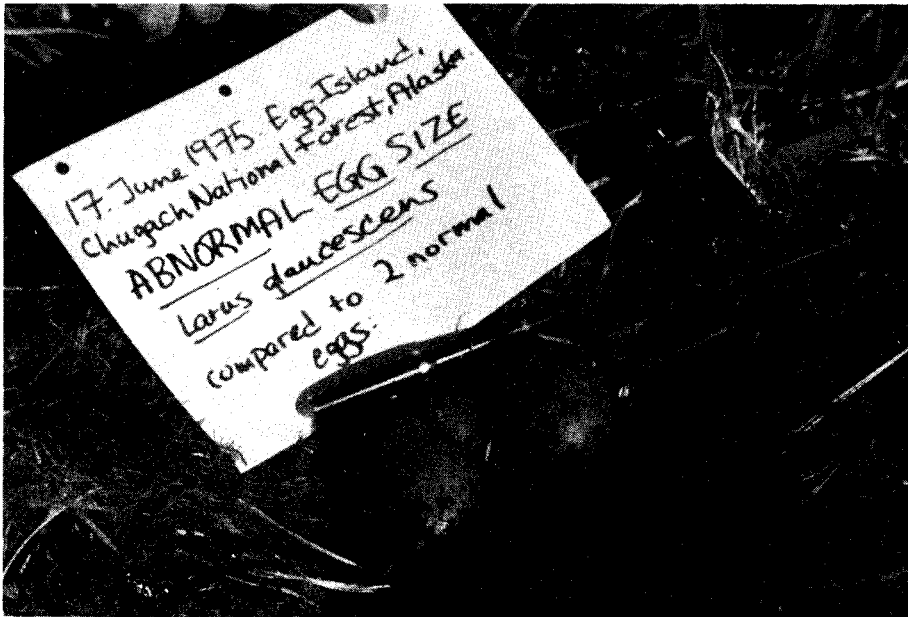 17 June 1975 Egg Island,
Chugach National Forest, Alaska
ABNORMAL EGG SIZE
Larus glaucescens
compared to 2 normal
eggs.